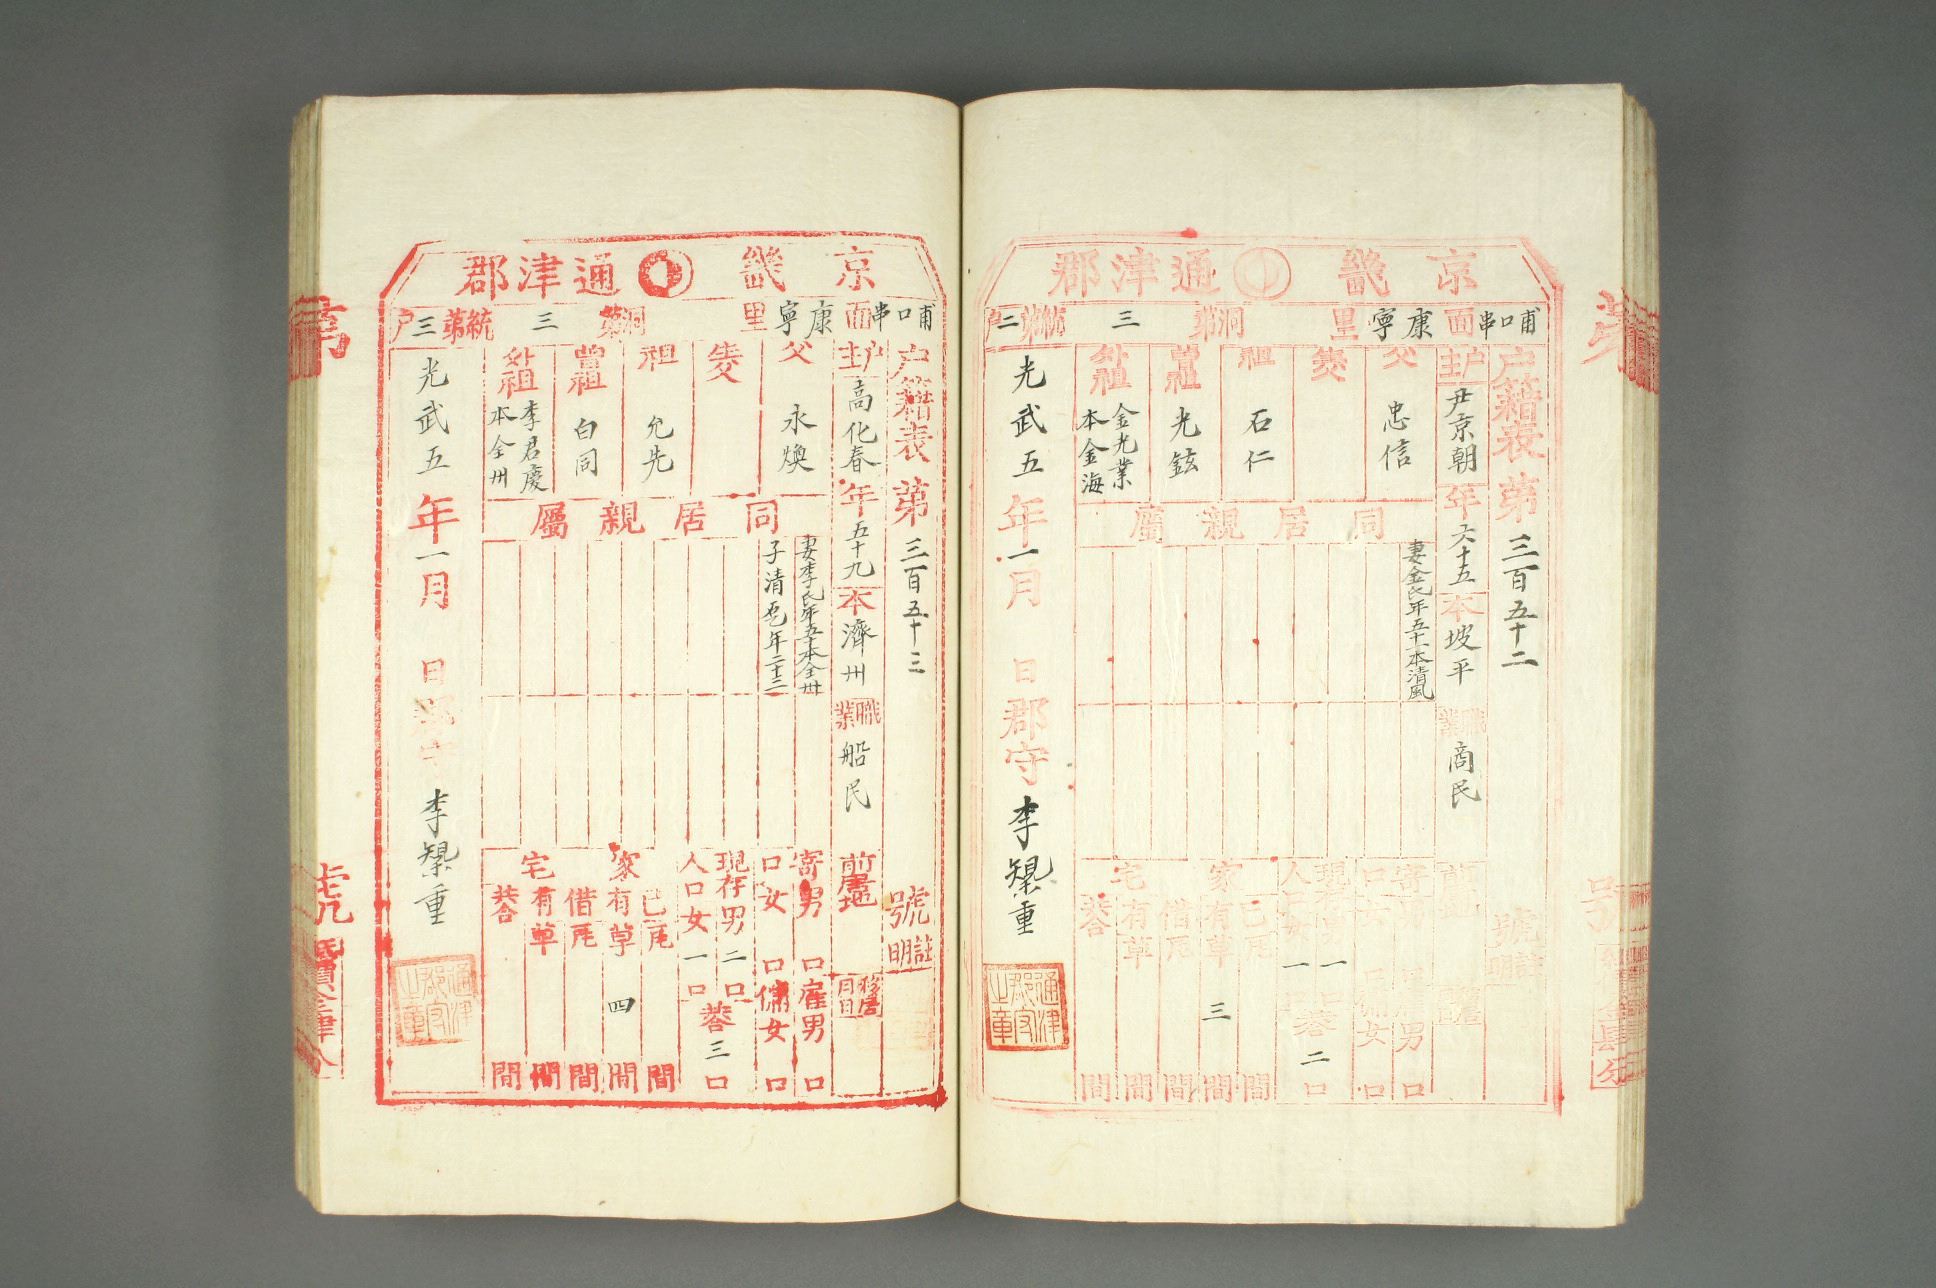 京 畿 通津郡
哺口串面 康寧里 洞第 三 統第 二 户
户籍表 第 三百五十二 號
户主 尹京朝 年 六十五 本 坡平 職業 商民
父 忠信
祖 石仁
曾祖 光鉉
外祖 金光業
本金海
同居親屬
妻金氏年五十一本清風
前居地
寄男 口 雇男 口
口女 口傭女 口
現存男 一 口
人口女 一 口
共 二 口
家 己有 瓦 間
草 三 間
宅 借有 瓦 間
草 間
共合 間
光武五年一月 日 郡守 李㮨重
通津郡守之章
京 畿 通津郡
哺口串面 康寧里 洞第 三 統第 三 户
户籍表 第 三百五十三 號
户主 高化春 年 五十九 本 濟州 職業 船民
父 永煥
祖 允先
曾祖 白同
外祖 李君慶
本全州
同居親屬
妻李氏年五十本全州
子清 年二十三
前居地 移居月日
寄男 口 雇男 口
口女 口傭女 口
現存男 二 口
人口女 一 口
共 三 口
家 己有 瓦 間
草 四 間
宅 借有 瓦 間
草 間
共合 間
光武五年一月 日 郡守 李㮨重
通津郡守之章